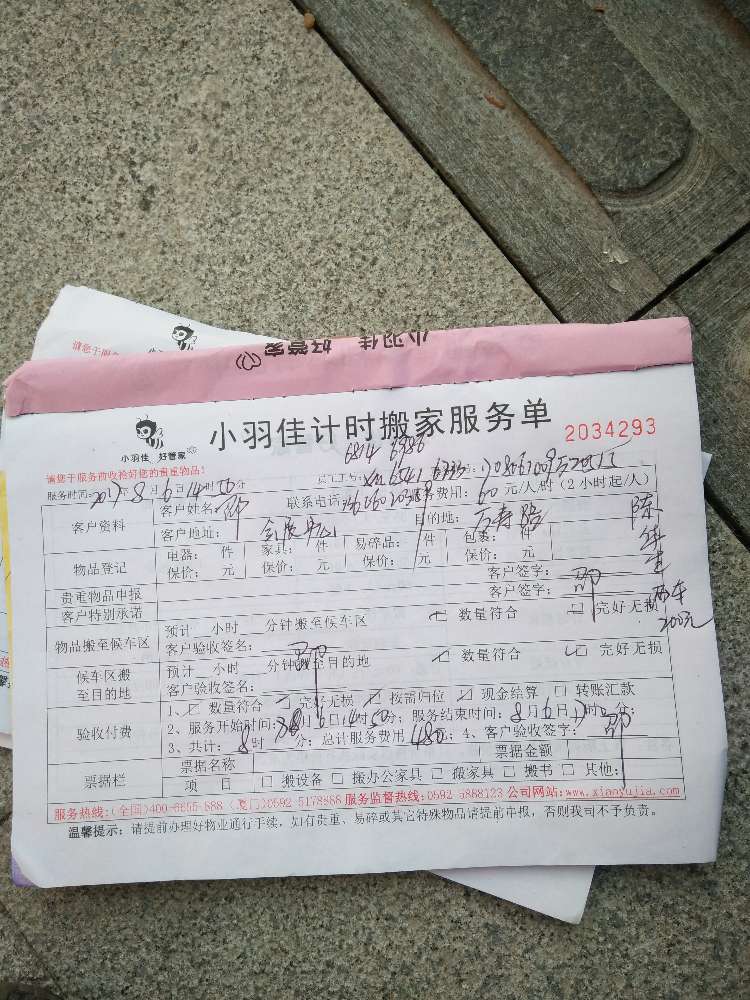 小羽佳 好管家
小羽佳 好管家
小羽佳计时搬家服务单
2034293
请您于服务前收拾好您的贵重物品!
6814 6986
员工工号:
服务时间:2017年8月6日14时50分
联系电话:
服务费用:60元/人/时(2小时起/人)
客户资料
客户姓名:邵
客户地址:
目的地:万寿路
陈
物品登记
电器: 件 家具: 件 易碎品: 件 包裹: 件
保价: 元 保价: 元 保价: 元 保价: 元
贵重物品申报
客户签字:邵
客户特别承诺
客户签字:
两车
200元
物品搬至候车区
预计 小时 分钟搬至候车区 数量符合 完好无损
客户验收签名:邵
候车区搬
至目的地
预计 小时 分钟搬至目的地 数量符合 完好无损
客户验收签名:
验收付费
1、 数量符合 完好无损 按需归位 现金结算 转账汇款
2、服务开始时间:8月6日14时50分;服务结束时间:8月6日
3、共计:8时 分;总计服务费用480元;4、客户验收签字:邵
票据栏
票据名称
票据金额
项 目 搬设备 搬办公家具 搬家具 搬书 其他:
服务热线:(全国)400-6655-888 (厦门)0592 5178888 服务监督热线:0592 5888123 公司网站:www.xiaoyujia.com
温馨提示:请提前办理好物业通行手续,如有贵重、易碎或其它特殊物品请提前申报,否则我司不予负责。